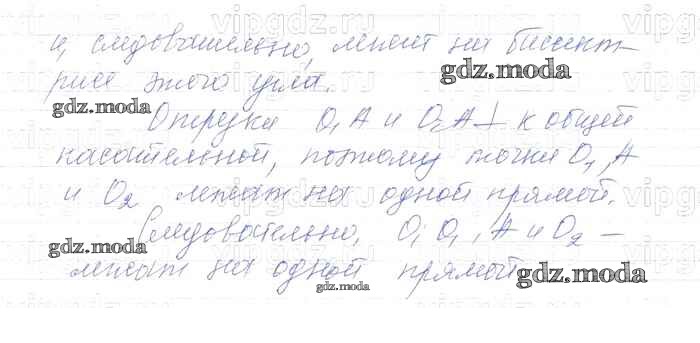 и, следовательно, лежит на биссект-
рисе этого угла.
Отрезки O₁A и O₂A ⊥ к общей
касательной, поэтому точки O₁, A
и O₂ лежат на одной прямой.
Следовательно, O; O₁, A и O₂ —
лежат на одной прямой.
gdz.moda
gdz.moda
gdz.moda
gdz.moda
gdz.moda